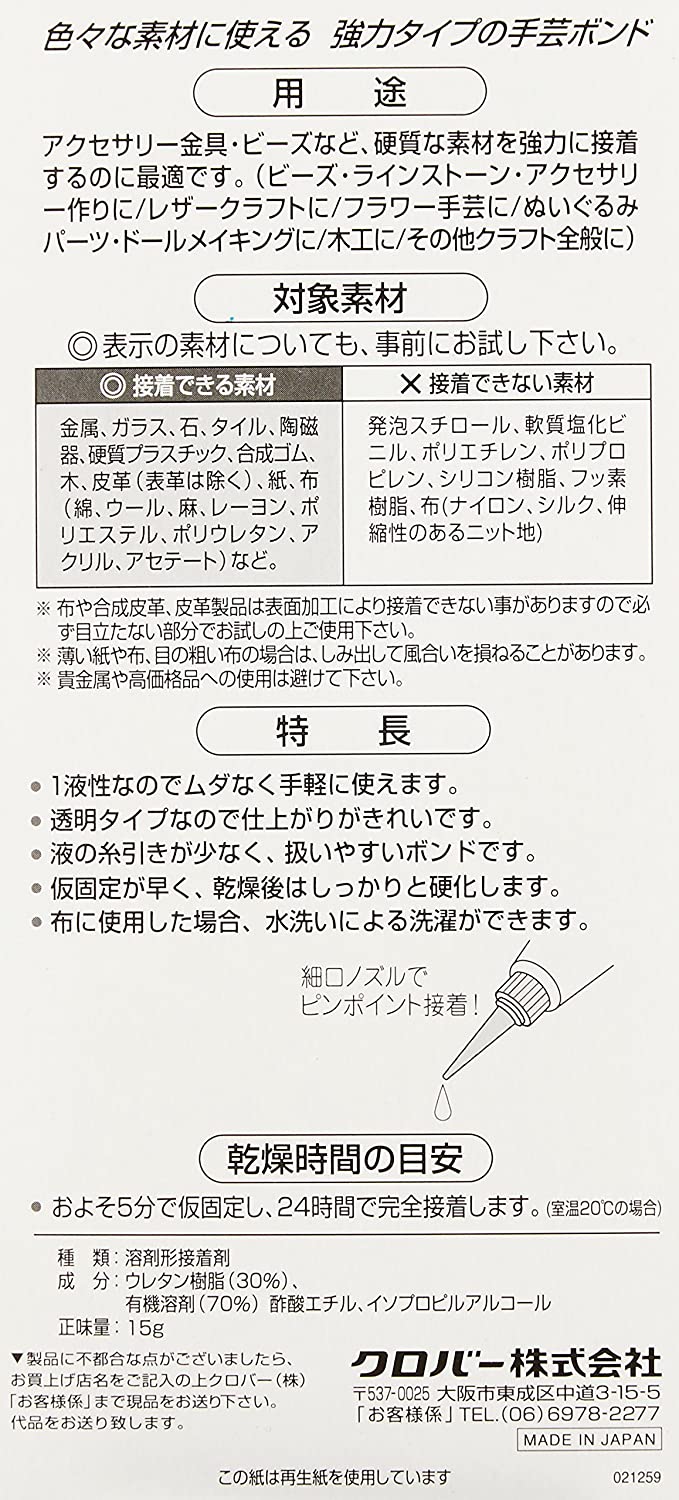 色々な素材に使える 強力タイプの手芸ボンド
用 途
アクセサリー金具・ビーズなど、硬質な素材を強力に接着
するのに最適です。(ビーズ・ラインストーン・アクセサリ
ー作りに/レザークラフトに/フラワー手芸に/ぬいぐるみ
パーツ・ドールメイキングに/木工に/その他クラフト全般に)
対象素材
◎表示の素材についても、事前にお試し下さい。
◎ 接着できる素材
金属、ガラス、石、タイル、陶磁
器、硬質プラスチック、合成ゴム、
木、皮革(表革は除く)、紙、布
(綿、ウール、麻、レーヨン、ポ
リエステル、ポリウレタン、ア
クリル、アセテート)など。
× 接着できない素材
発泡スチロール、軟質塩化ビ
ニル、ポリエチレン、ポリプロ
ピレン、シリコン樹脂、フッ素
樹脂、布(ナイロン、シルク、伸
縮性のあるニット地)
※ 布や合成皮革、皮革製品は表面加工により接着できない事がありますので必
ず目立たない部分でお試しの上ご使用下さい。
※ 薄い紙や布、目の粗い布の場合は、しみ出して風合いを損ねることがあります。
※ 貴金属や高価格品への使用は避けて下さい。
特 長
● 1液性なのでムダなく手軽に使えます。
● 透明タイプなので仕上がりがきれいです。
● 液の糸引きが少なく、扱いやすいボンドです。
● 仮固定が早く、乾燥後はしっかりと硬化します。
● 布に使用した場合、水洗いによる洗濯ができます。
細口ノズルで
ピンポイント接着!
乾燥時間の目安
● およそ5分で仮固定し、24時間で完全接着します。(室温20℃の場合)
種 類:溶剤形接着剤
成 分:ウレタン樹脂(30%)、
有機溶剤(70%) 酢酸エチル、イソプロピルアルコール
正味量:15g
▼製品に不都合な点がございましたら、
お買上げ店名をご記入の上クロバー(株)
「お客様係」まで現品をお送り下さい。
代品をお送り致します。
クロバー株式会社
〒537-0025 大阪市東成区中道3-15-5
「お客様係」TEL.(06)6978-2277
MADE IN JAPAN
この紙は再生紙を使用しています
021259